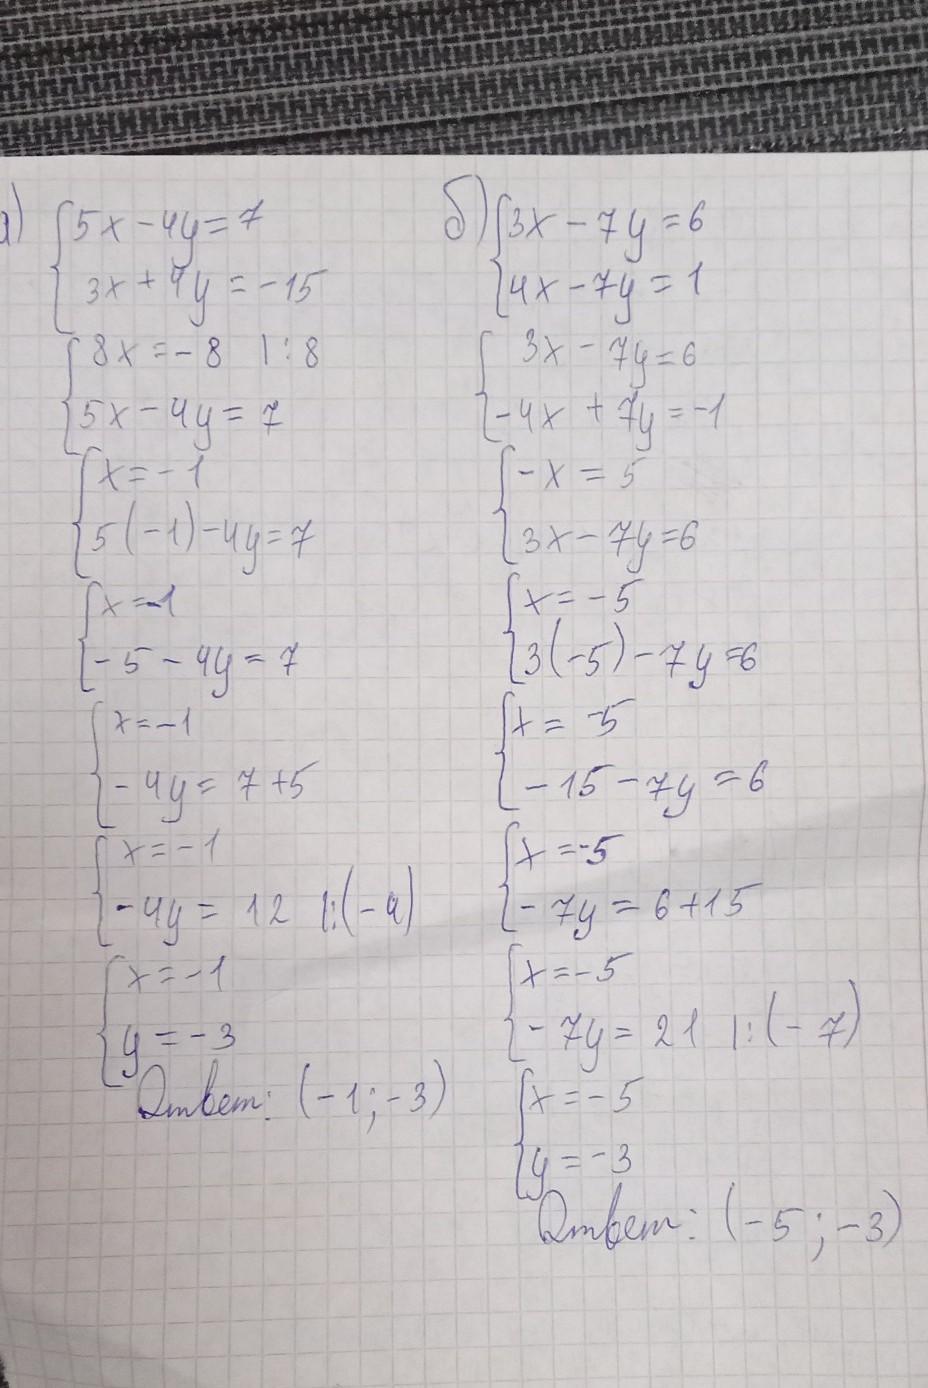 а)
5x - 4y = 7
3x + 4y = -15
8x = -8 |:8
5x - 4y = 7
x = -1
5(-1) - 4y = 7
x = -1
-5 - 4y = 7
x = -1
-4y = 7 + 5
x = -1
-4y = 12 |:(-4)
x = -1
y = -3
Ответ: (-1; -3)
б)
3x - 7y = 6
4x - 7y = 1
3x - 7y = 6
-4x + 7y = -1
-x = 5
3x - 7y = 6
x = -5
3(-5) - 7y = 6
x = -5
-15 - 7y = 6
x = -5
-7y = 6 + 15
x = -5
-7y = 21 |:(-7)
x = -5
y = -3
Ответ: (-5; -3)